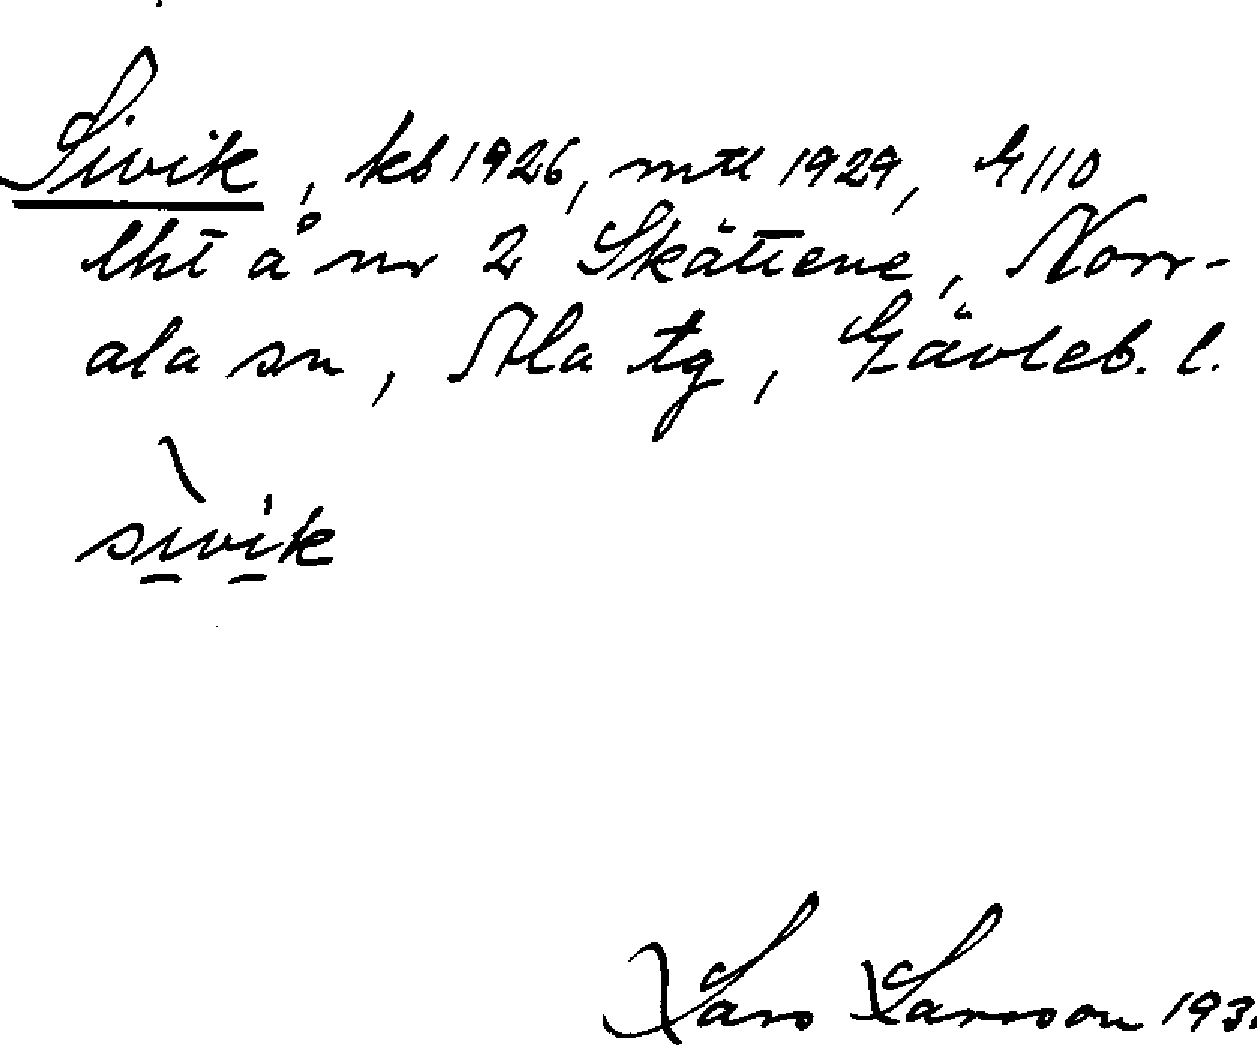 Sivik, kb 1926, mtl 1929, G110
lht å nr 2 Skättene, Norr-
ala sn, Ala tg, Gävleb. l.
sivik
Lars Larsson 193